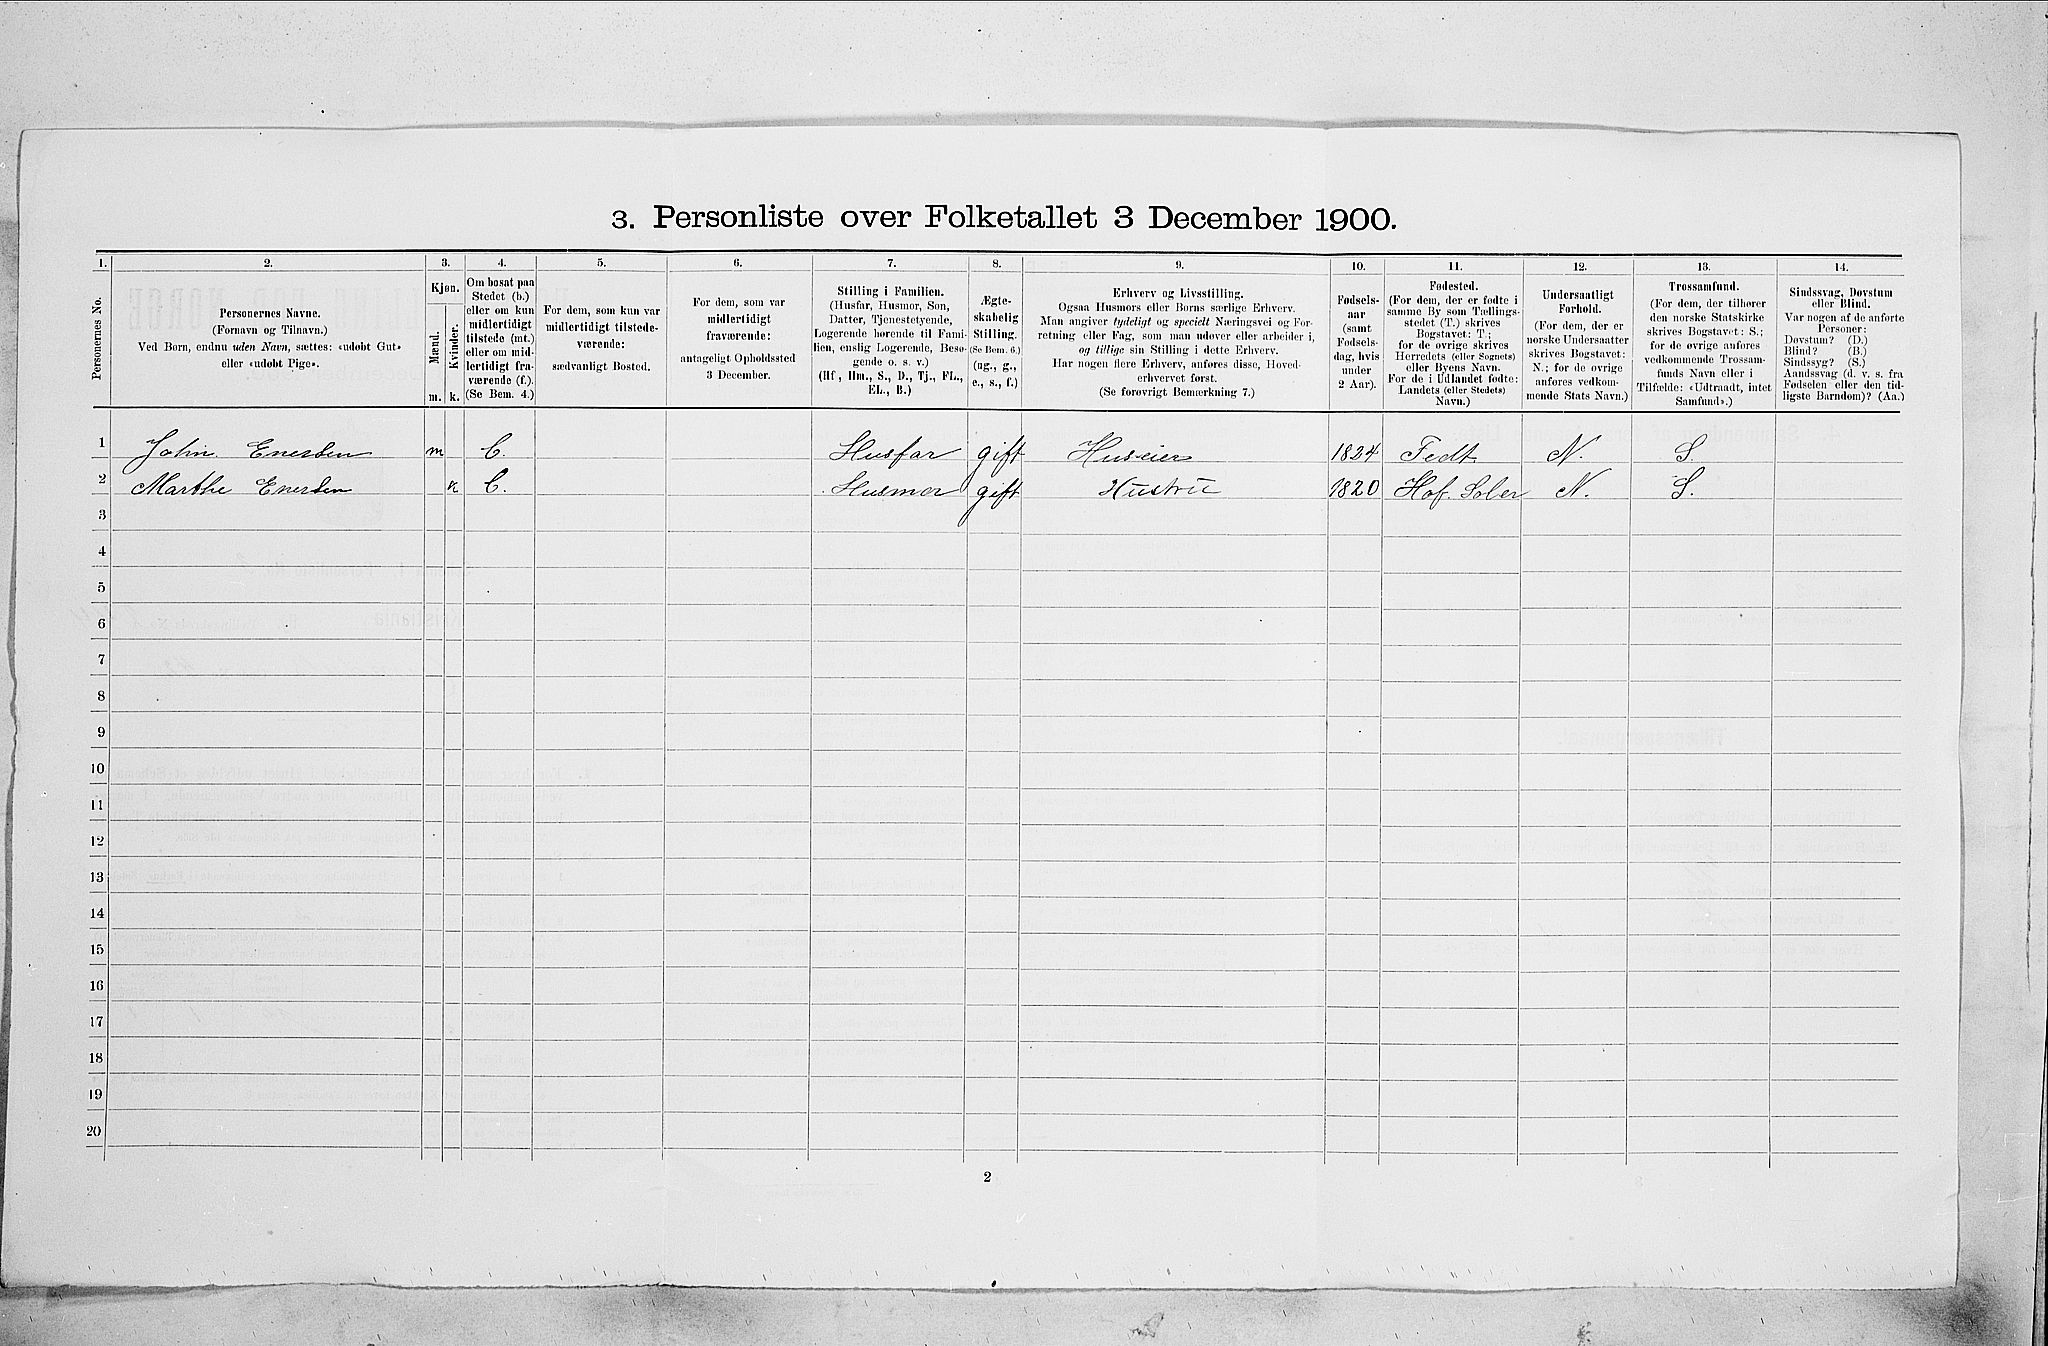 3. Personliste over Folketallet 3 December 1900.
1. 2. 3. 4. 5. 6. 7. 8. 9. 10. 11. 12. 13. 14.
Personernes No.
Personernes Navne.
(Fornavn og Tilnavn.)
Ved Børn, endnu uden Navn, sættes: «udøbt Gut»
eller «udøbt Pige».
Kjøn.
Mænd.
Kvinder.
m. k.
Om bosat paa
Stedet (b.)
eller om kun
midlertidigt
tilstede (mt.)
eller om mid-
lertidigt fra-
værende (f.).
(Se Bem. 4.)
For dem, som kun var
midlertidigt tilstede-
værende:
sædvanligt Bosted.
For dem, som var
midlertidigt
fraværende:
antageligt Opholdssted
3 December.
Stilling i Familien.
(Husfar, Husmor, Søn,
Datter, Tjenestetyende,
Logerende hørende til Fami-
lien, enslig Logerende, Besø-
gende o. s. v.)
(Hf., Hm., S., D., Tj., FL.,
EL., B.)
Ægte-
skabelig
Stilling.
(Se Bem. 6.)
(ug., g.,
e., s., f.)
Erhverv og Livsstilling.
Ogsaa Husmors eller Børns særlige Erhverv.
Man angiver tydeligt og specielt Næringsvei og For-
retning eller Fag, som man udøver eller arbeider i,
og tillige sin Stilling i dette Erhverv.
Har nogen flere Erhverv, anføres disse, Hoved-
erhvervet først.
(Se forøvrigt Bemærkning 7.)
Fødsels-
aar
(samt
Fødsels-
dag, hvis
under
2 Aar).
Fødested.
(For dem, der er fødte i
samme By som Tællings-
stedet (T.) skrives
Bogstavet: T;
for de øvrige skrives
Herredets (eller Sognets)
eller Byens Navn.
For de i Udlandet fødte:
Landets (eller Stedets)
Navn.)
Undersaatligt
Forhold.
(For dem, der er
norske Undersaatter
skrives Bogstavet:
N.; for de øvrige
anføres vedkom-
mende Stats Navn.)
Trossamfund.
(For dem, der tilhører
den norske Statskirke
skrives Bogstavet: S.;
for de øvrige anføres
vedkommende Trossam-
funds Navn eller i
Tilfælde: «Udtraadt, intet
Samfund».)
Sindssvag, Døvstum
eller Blind.
Var nogen af de anførte
Personer:
Døvstum? (D.)
Blind? (B.)
Sindssyg? (S.)
Aandssvag (d. v. s. fra
Fødselen eller den tid-
ligste Barndom)? (Aa.)
1 John Enersen m b. Husfar gift Huseier 1824 Tedt N. S.
2 Marthe Enersen k b. Husmor gift Hustru 1820 Hof. Soler N. S.
3
4
5
6
7
8
9
10
11
12
13
14
15
16
17
18
19
20
2